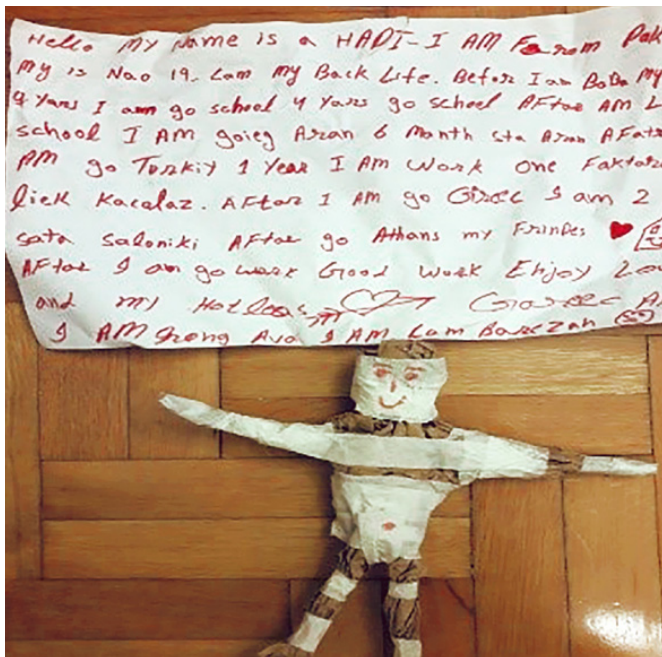 Hello MY Name is a HADI-I AM From Pak
My is Nao 19. Lam my Back Life. Befor I am BoDa My
4 Yars I am go school 4 Yars go school AFtar AM L
school I AM goieg Aran 6 Month sta Aran AFat
AM go Torkiy 1 Year I AM work one Faktar
liek Kacalaz. AFtar I am go Girec I am 2
sata saloniki AFtar go Athans my Frindes
AFtar I am go work Good work Enjoy Lo
and my Hotloas Garec A
I AM Ava I AM Lam Barczan